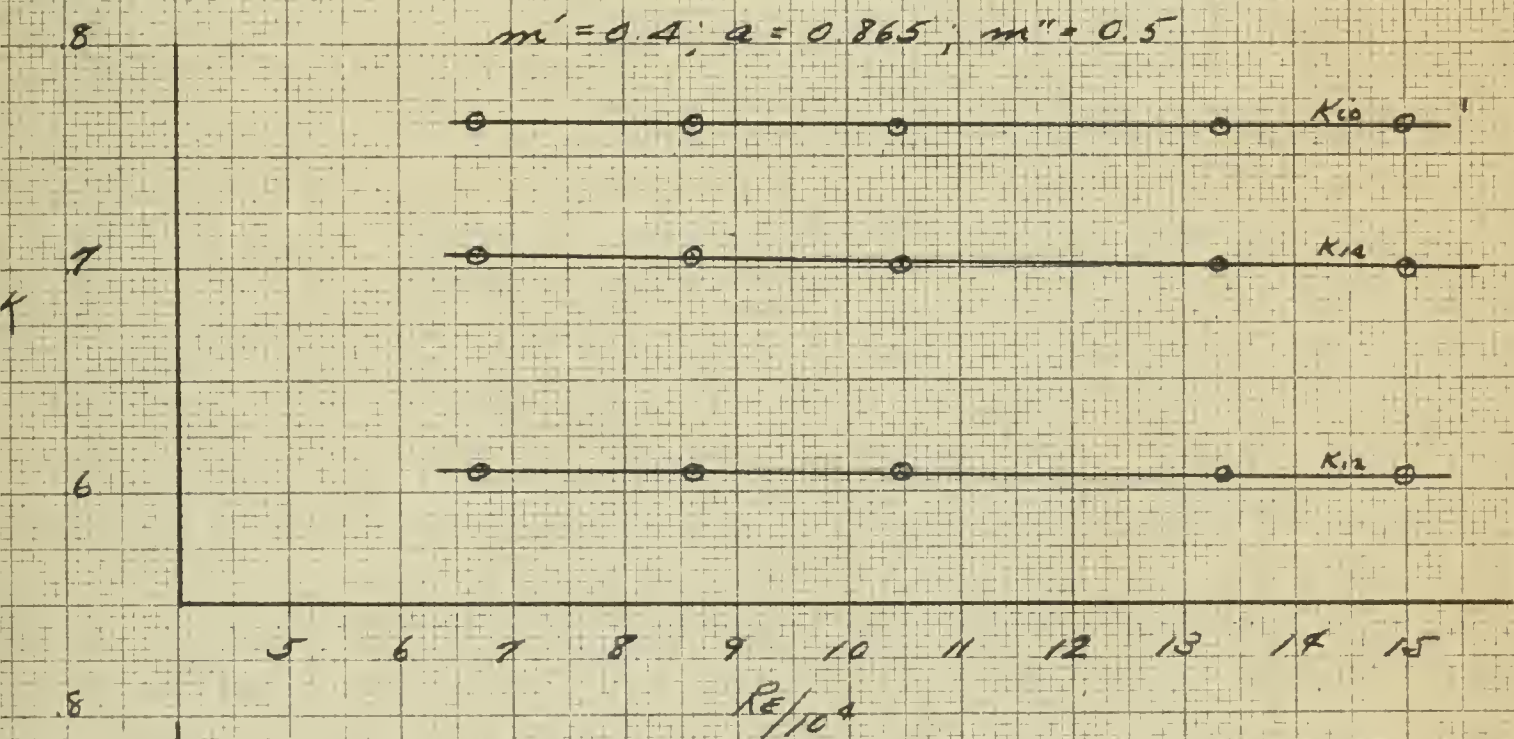 m' = 0.4; a = 0.865; m" = 0.5
.8
K10
.7
K14
K
.6
K12
5 6 7 8 9 10 11 12 13 14 15
Re/10^4
.8